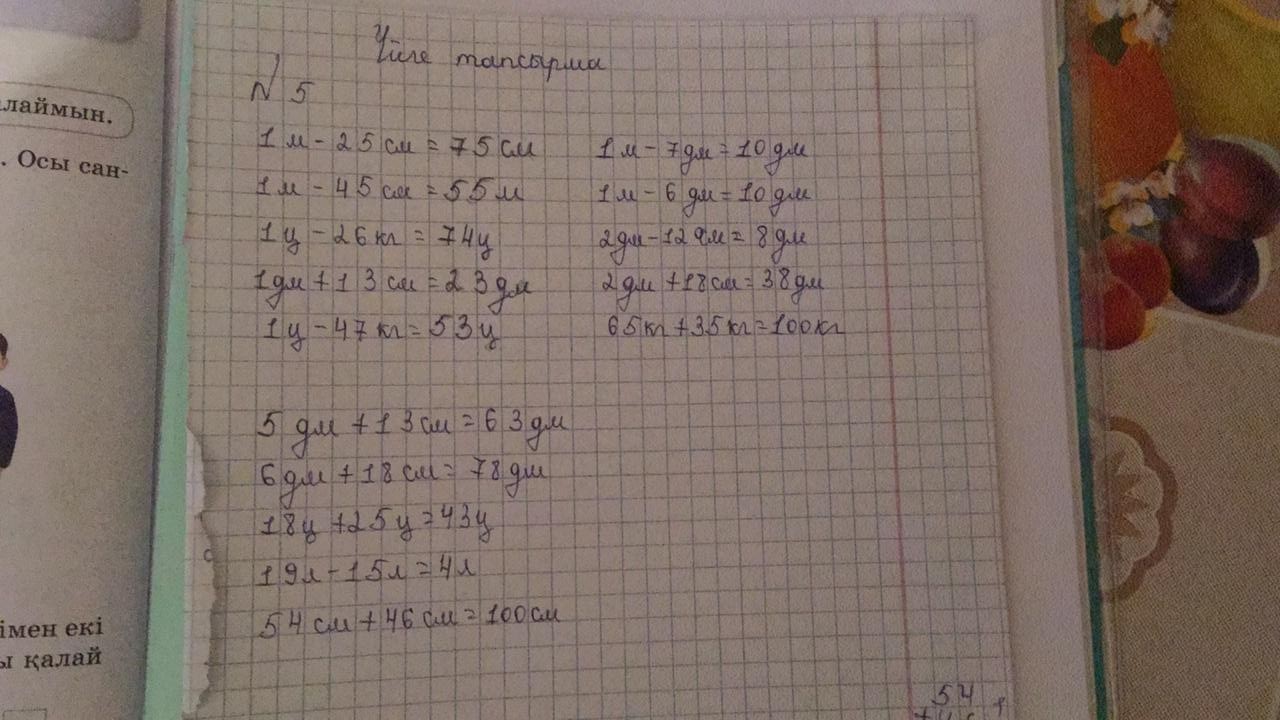 лаймын.
. Осы сан-
імен екі
ы қалай
Үйге тапсырма
N 5
1м - 25 см = 75 см
1м - 45 см = 55 м
1ц - 26 кг = 74ц
1дм + 13 см = 23 дм
1ц - 47 кг = 53ц
1м - 7дм = 10дм
1м - 6 дм = 10 дм
2дм - 12 = 8 дм
2дм + 18см = 38дм
65кг + 35кг = 100кг
5 дм + 13 см = 63 дм
6дм + 18 см = 78 дм
18ц + 25ц = 43ц
19л - 15л = 4л
54 см + 46 см = 100 см
54